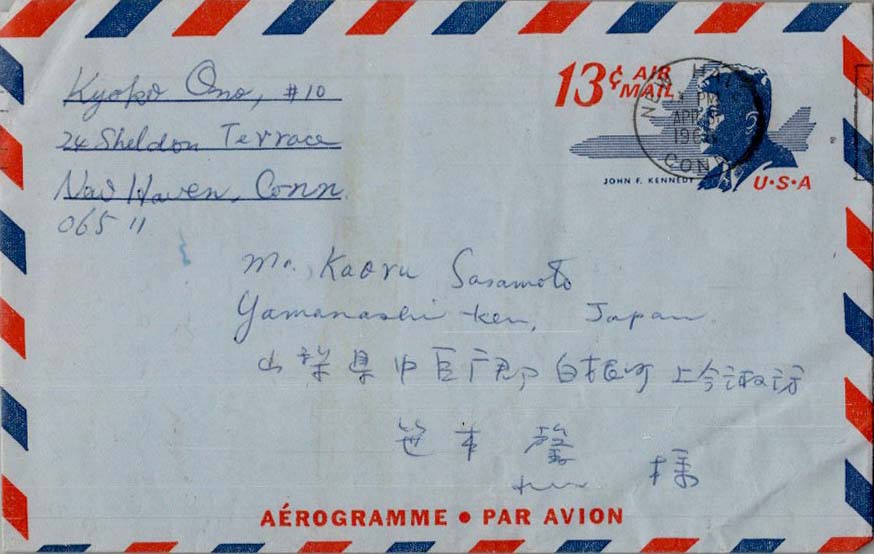 Kyoko Ono, #10
24 Sheldon Terrace
New Haven, Conn.
06511
13¢ AIR MAIL
NEW HA
PM
APR
196
CONN
JOHN F. KENNEDY
U·S·A
Mr. Kaoru Sasamoto
Yamanashi-ken, Japan.
山梨県中巨广郡白根町上今諏訪
笹本 馨
様
AÉROGRAMME • PAR AVION